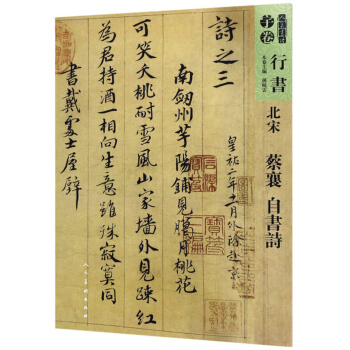 行書
北宋 蔡襄 自書詩
詩之三
皇祐二年十一月外除赴京
南劔州芋陽鋪見臘月桃花
可笑夭桃耐雪風山家墻外見踈紅
為君持酒一相向生意雖殊寂寞同
書戴處士屋壁
人民美術出版社